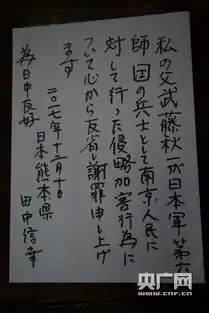 私の父武藤秋一が日本軍第六
師団の兵士として南京人民に
対して行った侵略加害行為に
ついて心から反省し謝罪申し上げ
ます
二〇一七年十二月十日
日本熊本県
田中信幸
為日中友好
央广网
www.cnr.cn